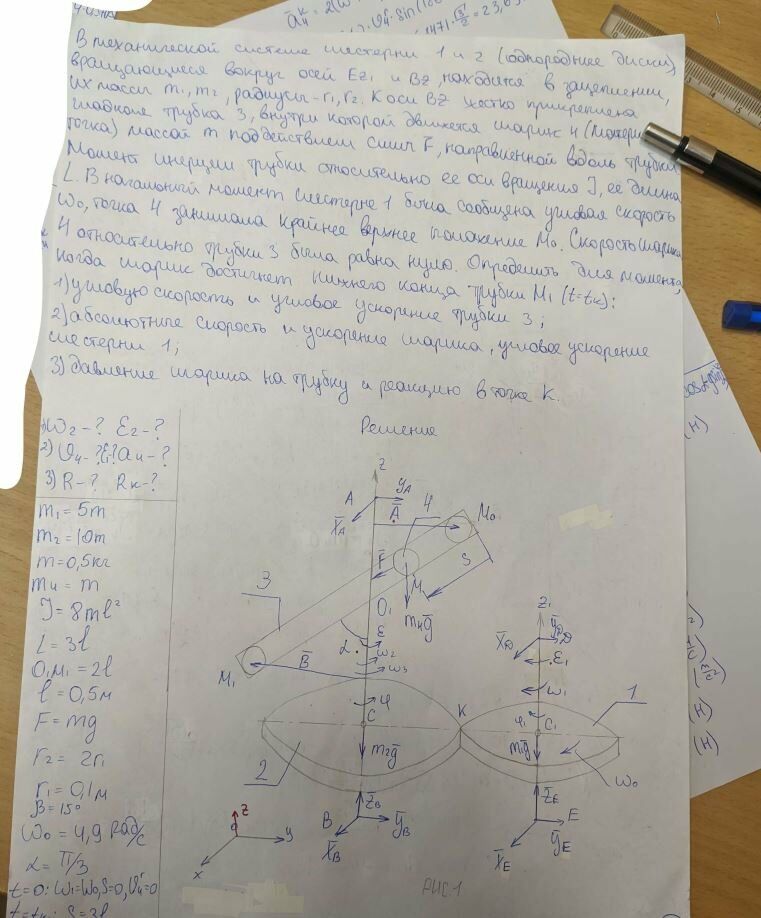 В механической системе шестерни 1 и 2 (однородные диски),
вращающиеся вокруг осей Ez₁ и Bz, находятся в зацеплении,
их массы m₁, m₂, радиусы - r₁, r₂. К оси Bz жестко прикреплена
гладкая трубка 3, внутри которой движется шарик 4 (матери
точка) массой m под действием силы F̄, направленной вдоль трубки
Момент инерции трубки относительно ее оси вращения J, ее длина
L. В начальный момент шестерне 1 была сообщена угловая скорость
ω₀, точка 4 занимала крайнее верхнее положение M₀. Скорость шарика
4 относительно трубки 3 была равна нулю. Определить для момента,
когда шарик достигнет нижнего конца трубки M₁ (t=tк):
1) угловую скорость и угловое ускорение трубки 3;
2) абсолютные скорость и ускорение шарика, угловое ускорение
шестерни 1;
3) давление шарика на трубку и реакцию в точке K.
Решение
1) ω₂-? ε₂-?
2) υ₄-? ε₁? a₄-?
3) R-? Rк-?
m₁ = 5m
m₂ = 10m
m = 0,5кг
m₄ = m
J = 8ml²
L = 3l
O₁M₁ = 2l
l = 0,5м
F = mg
r₂ = 2r₁
r₁ = 0,1м
β = 15°
ω₀ = 4,9 рад/с
α = π/3
t=0: ω₁=ω₀, S=0, υ₄ʳ=0
z
A
ȳA
x̄A
Ā
4
M₀
F̄
M
S
3
O₁
m₄ḡ
ε
α
ω₂
ω₃
M₁
B̄
φ
C
K
2
m₂ḡ
z̄B
B
ȳB
x̄B
z₁
ȳD
D
x̄D
ε₁
ω₁
1
φ₁
C₁
m₁ḡ
ω₀
z̄E
E
ȳE
x̄E
z
0
y
x
Рис. 1